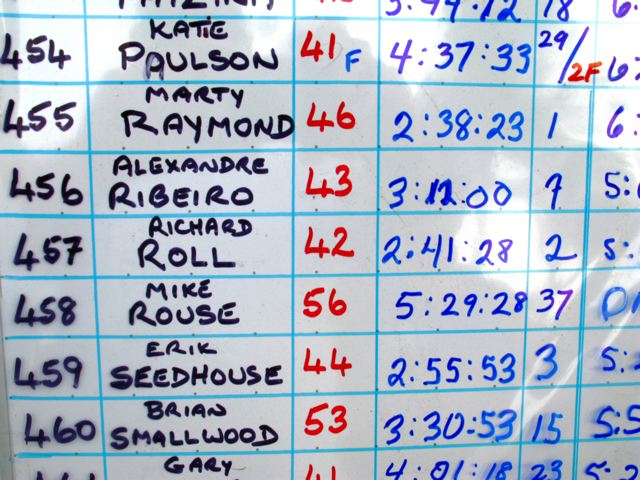 3:44:12 18 6:
454 KATIE POULSON 41 F 4:37:33 29/2F 6:
455 MARTY RAYMOND 46 2:38:23 1 6:
456 ALEXANDRE RIBEIRO 43 3:12:00 7 5:
457 RICHARD ROLL 42 2:41:28 2 5:
458 MIKE ROUSE 56 5:29:28 37
459 ERIK SEEDHOUSE 44 2:55:53 3 5:
460 BRIAN SMALLWOOD 53 3:30:53 15 5:5
GARY 41 4:01:18 23 5:2